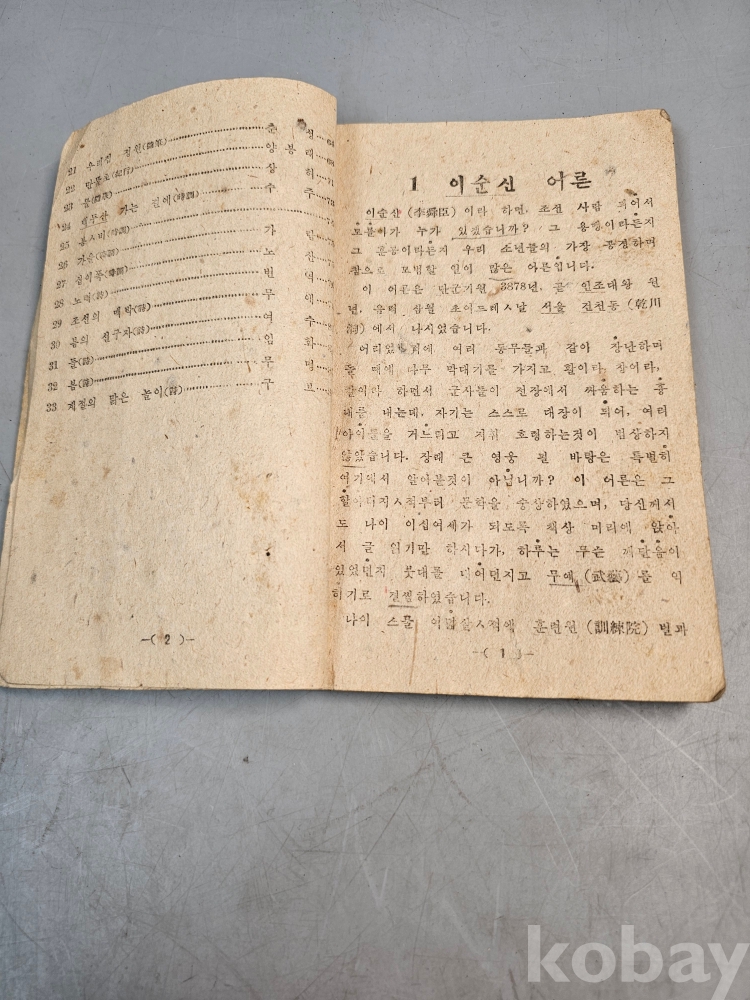 21 우리집 정원(隨筆) 춘 성
22 만물초(紀行) 양 봉 래
23 봄(戱曲) 상 허
24 백두산 가는 길에(時調) 수 주
25 봄ㅅ비(時調) 가 람
26 가을(時調) 노 산
27 봄(時調)
28 노래(詩)
29 조선의 맥박(詩) 무 애
30 봄의 선구자(詩) 여 수
31 돌(詩)
32 봄(詩) 무 명
33 계절의 맑은 놀이(詩) 구 브
—( 2 )—
1 이순신 어른
이순신 (李舜臣) 이라 하면, 조선 사람 되어서
모를이가 누가 있겠습니까? 그 용맹이라든지
그 훈공이라든지 우리 소년들의 가장 공경하며
참으로 모범할 일이 많은 어른입니다.
이 어른은 단군기원 3878년, 곧 인조대왕 원
년, 음력 삼월 초여드레ㅅ날 서울 건천동 (乾川
洞) 에서 나시었습니다.
어리었을 때에 여러 동무들과 같이 장난하며
놀 때에 나무 막대기를 가지고 활이라, 창이라,
칼이라 하면서 군사들이 전장에서 싸움하는 흉
내를 내는데, 자기는 스스로 대장이 되어, 여러
아이들을 거느리고 지휘 호령하는것이 범상하지
않았습니다. 장래 큰 영웅 될 바탕은 특별히
여기에서 알아볼것이 아닙니까? 이 어른은 그
할아더지ㅅ적부터 문학을 숭상하였으며, 당신께서
도 나이 이십여세가 되도록 책상 머리에 앉아
서 글 읽기만 하시다가, 하루는 무슨 깨달음이
있었던지 붓대를 내어던지고 무예 (武藝) 를 익
히기로 결심하였습니다.
나이 스물 여덟살ㅅ적에 훈련원 (訓練院) 별과
—( 1 )—
kobay